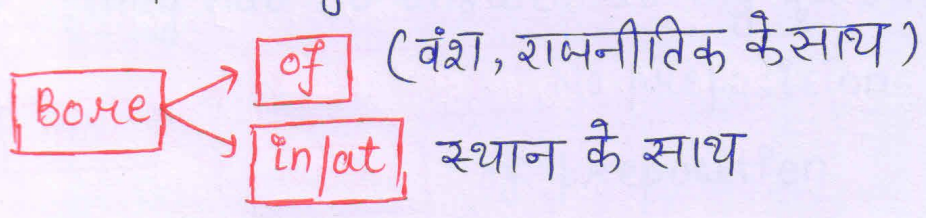 Bore
of (वंश, राजनीतिक के साथ)
in/at स्थान के साथ